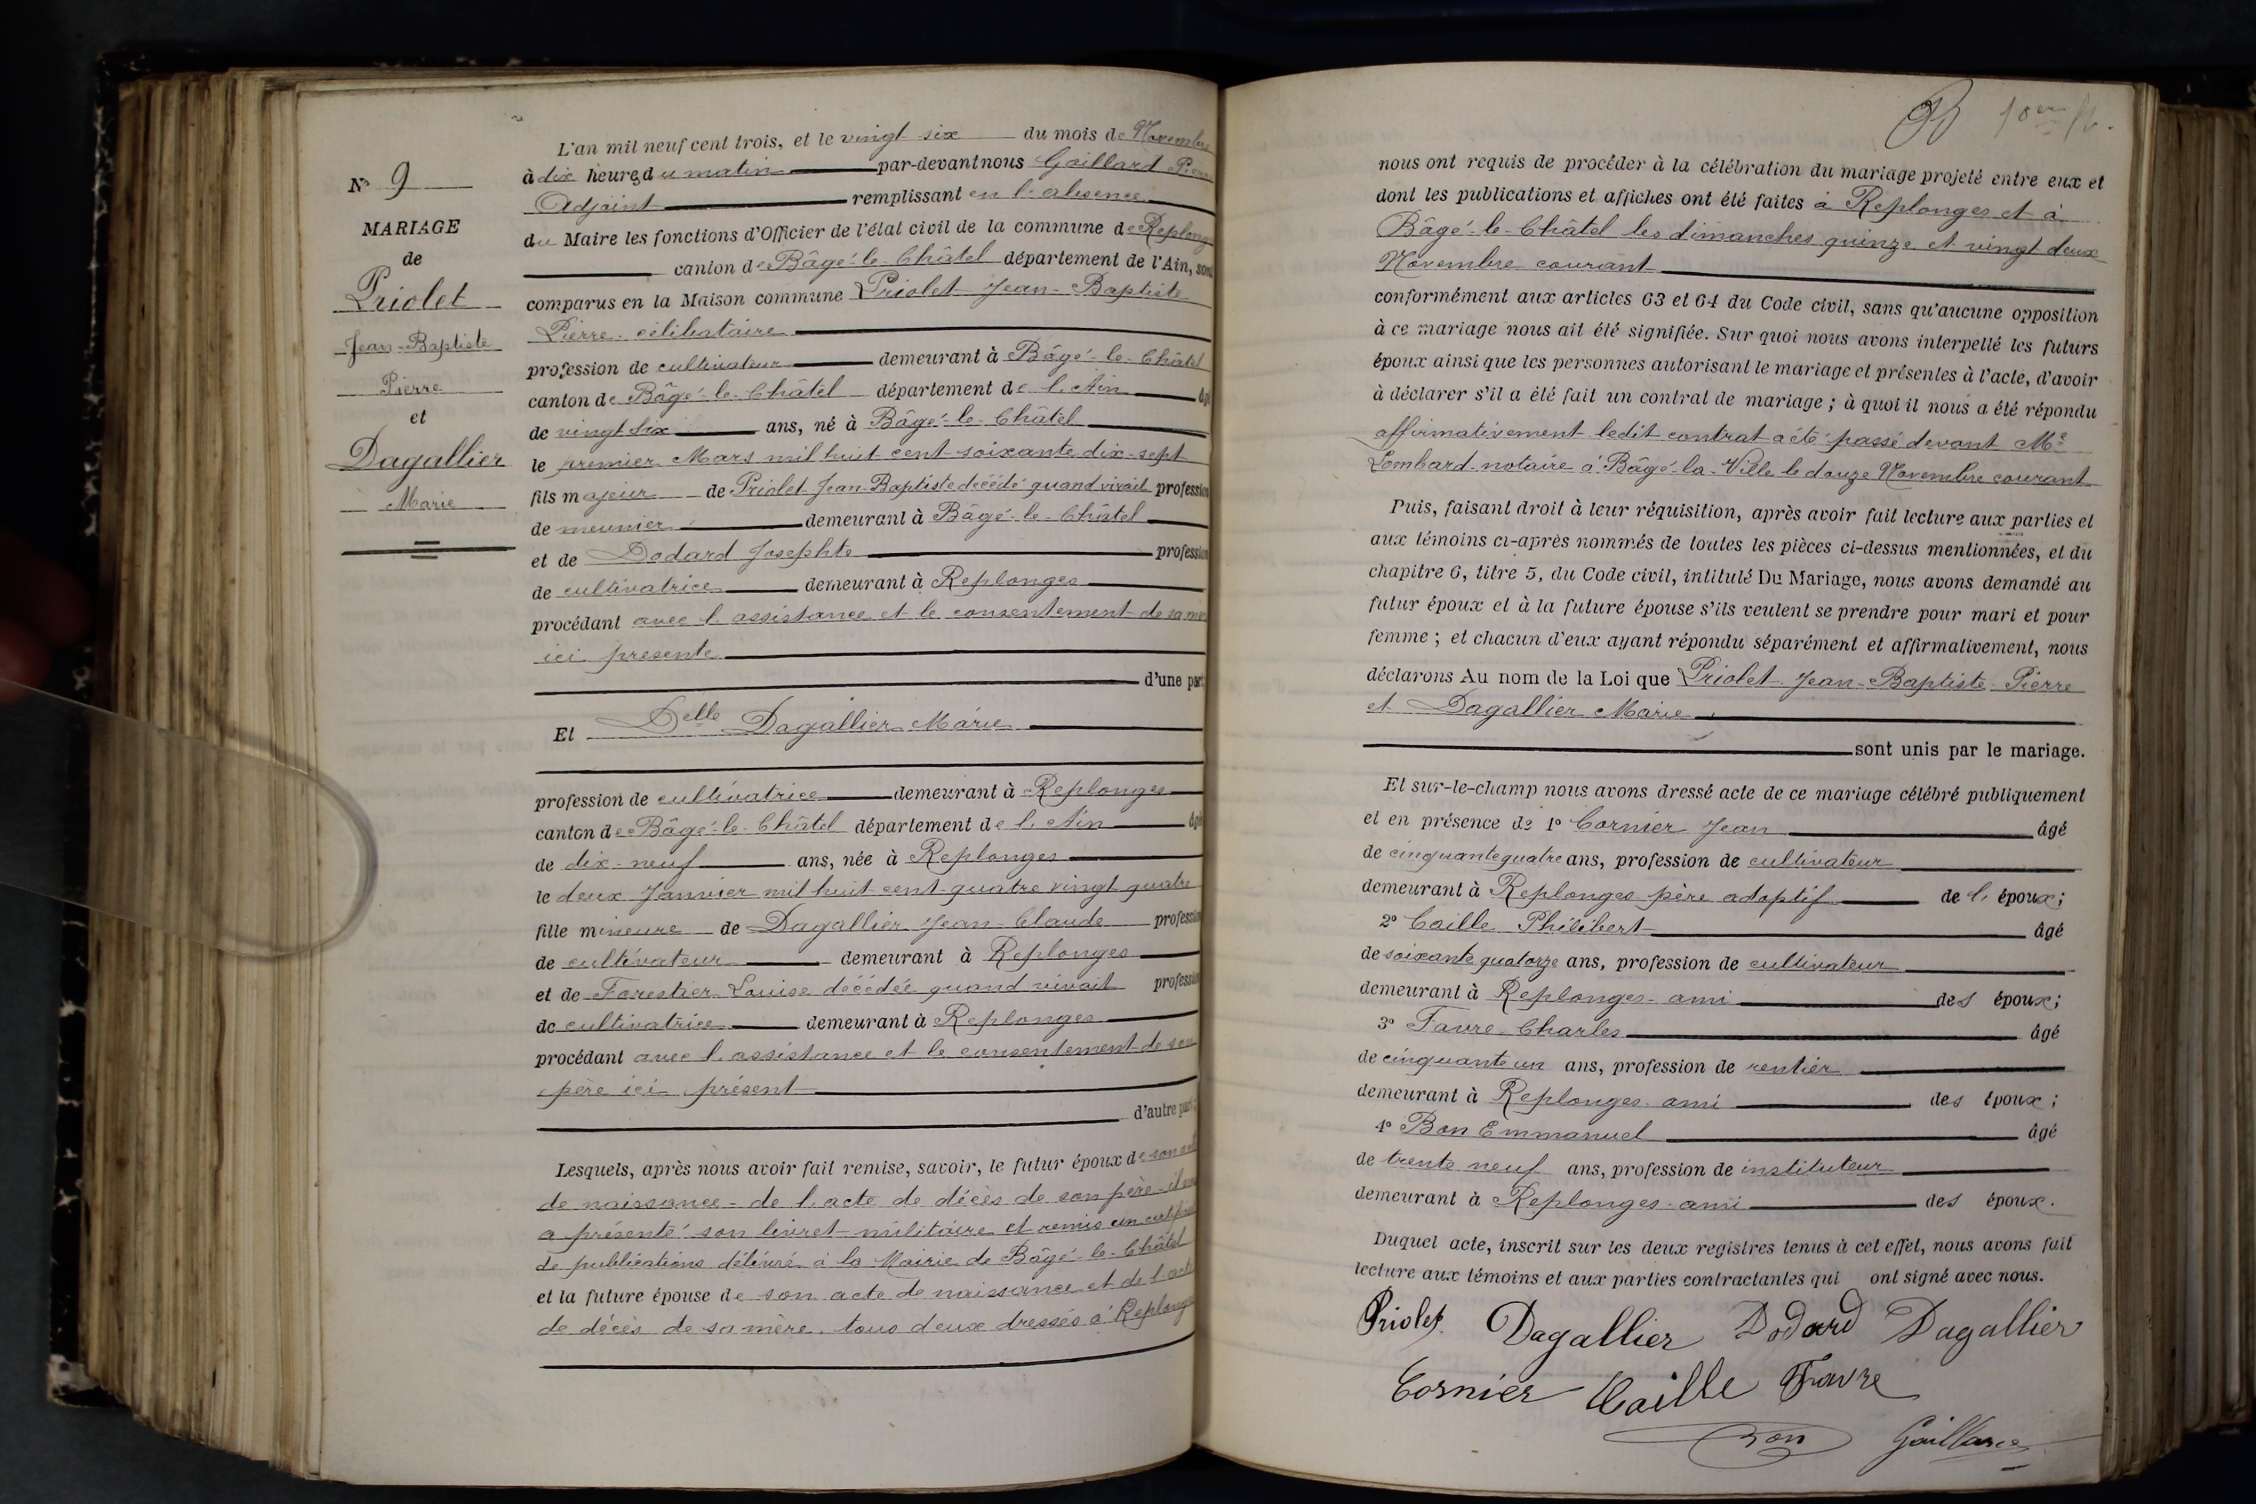 N° 9
MARIAGE
de
Priolet
Jean-Baptiste
Pierre
et
Dagallier
Marie
L'an mil neuf cent trois, et le vingt six du mois de Novembre
à dix heures du matin par-devant nous Gaillard Pierre
Adjoint remplissant en l'absence
du Maire les fonctions d'Officier de l'état civil de la commune de Replonges
canton de Bâgé-le-Châtel département de l'Ain, sont
comparus en la Maison commune Priolet Jean-Baptiste
Pierre célibataire
profession de cultivateur demeurant à Bâgé-le-Châtel
canton de Bâgé-le-Châtel département de l'Ain âgé
de vingt six ans, né à Bâgé-le-Châtel
le premier Mars mil huit cent soixante dix-sept
fils majeur de Priolet Jean-Baptiste décédé quand vivait profession
de meunier demeurant à Bâgé-le-Châtel
et de Dodard Josephte profession
de cultivatrice demeurant à Replonges
procédant avec l'assistance et le consentement de sa mère
ici présente
d'une part
Et Delle Dagallier Marie
profession de cultivatrice demeurant à Replonges
canton de Bâgé-le-Châtel département de l'Ain âgée
de dix-neuf ans, née à Replonges
le deux Janvier mil huit cent quatre vingt quatre
fille mineure de Dagallier Jean Claude profession
de cultivateur demeurant à Replonges
et de Forestier Louise décédée quand vivait profession
de cultivatrice demeurant à Replonges
procédant avec l'assistance et le consentement de son
père ici présent
d'autre part;
Lesquels, après nous avoir fait remise, savoir, le futur époux de son acte
de naissance - de l'acte de décès de son père - il nous
a présenté son livret militaire et remis un certificat
de publications délivré à la Mairie de Bâgé-le-Châtel
et la future épouse de son acte de naissance et de l'acte
de décès de sa mère, tous deux dressés à Replonges
nous ont requis de procéder à la célébration du mariage projeté entre eux et
dont les publications et affiches ont été faites à Replonges et à
Bâgé-le-Châtel les dimanches quinze et vingt deux
Novembre courant
conformément aux articles 63 et 64 du Code civil, sans qu'aucune opposition
à ce mariage nous ait été signifiée. Sur quoi nous avons interpellé les futurs
époux ainsi que les personnes autorisant le mariage et présentes à l'acte, d'avoir
à déclarer s'il a été fait un contrat de mariage ; à quoi il nous a été répondu
affirmativement ledit contrat a été passé devant Me
Lombard notaire à Bâgé-la-Ville le douze Novembre courant
Puis, faisant droit à leur réquisition, après avoir fait lecture aux parties et
aux témoins ci-après nommés de toutes les pièces ci-dessus mentionnées, et du
chapitre 6, titre 5, du Code civil, intitulé Du Mariage, nous avons demandé au
futur époux et à la future épouse s'ils veulent se prendre pour mari et pour
femme ; et chacun d'eux ayant répondu séparément et affirmativement, nous
déclarons Au nom de la Loi que Priolet Jean-Baptiste Pierre
et Dagallier Marie
sont unis par le mariage.
Et sur-le-champ nous avons dressé acte de ce mariage célébré publiquement
et en présence de 1° Cornier Jean âgé
de cinquante quatre ans, profession de cultivateur
demeurant à Replonges père adoptif de l'époux;
2° Caille Philibert âgé
de soixante quatorze ans, profession de cultivateur
demeurant à Replonges - ami des époux;
3° Favre Charles âgé
de cinquante un ans, profession de rentier
demeurant à Replonges ami des époux;
4° Bon Emmanuel âgé
de trente neuf ans, profession de instituteur
demeurant à Replonges - ami des époux.
Duquel acte, inscrit sur les deux registres tenus à cet effet, nous avons fait
lecture aux témoins et aux parties contractantes qui ont signé avec nous.
Priolet Dagallier Dodard Dagallier
Cornier Caille Favre
Bon Gaillard